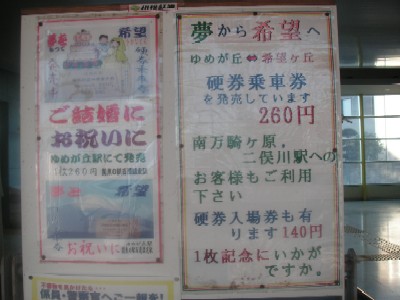 希望
ご結婚に
お祝いに
ゆめが丘駅にて発売
1枚260円
希望
お祝いに
夢から希望へ
ゆめが丘⇔希望ヶ丘
硬券乗車券
を発売しています
260円
南万騎ヶ原,
二俣川駅への
お客様もご利用
下さい
硬券入場券も有
ります140円
1枚記念にいかが
ですか。
係員・警察官へご一報を!